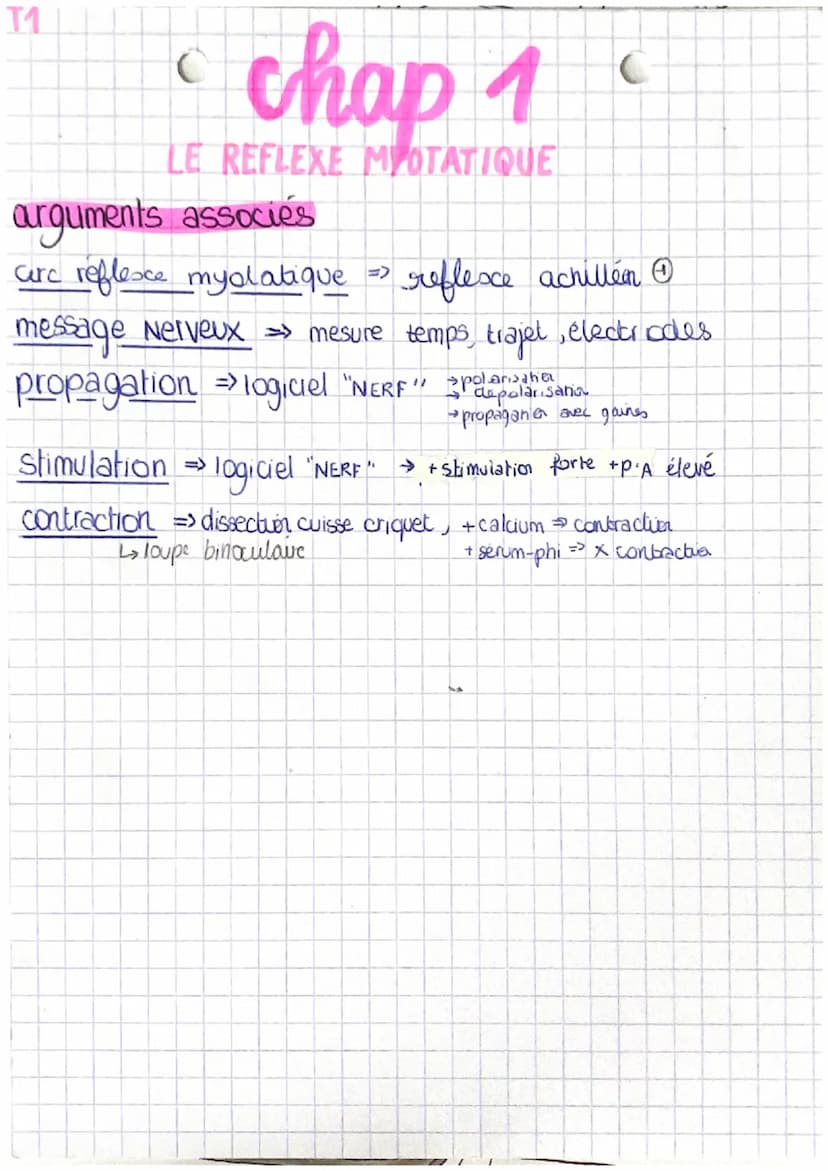 T1
chap 1
LE REFLEXE MYOTATIQUE
arguments associés
arc réflexe myotatique => reflexe achilléen ①
message Nerveux => mesure temps, trajet, électrodes
propagation => logiciel "NERF" → polarisation
→ dépolarisation
→ propagation avec gaines
Stimulation => logiciel "NERF" → + stimulation forte + P.A élevé
contraction => dissection cuisse criquet, + calcium => contraction
↳ loupe binoculaire + sérum-phi => x contraction